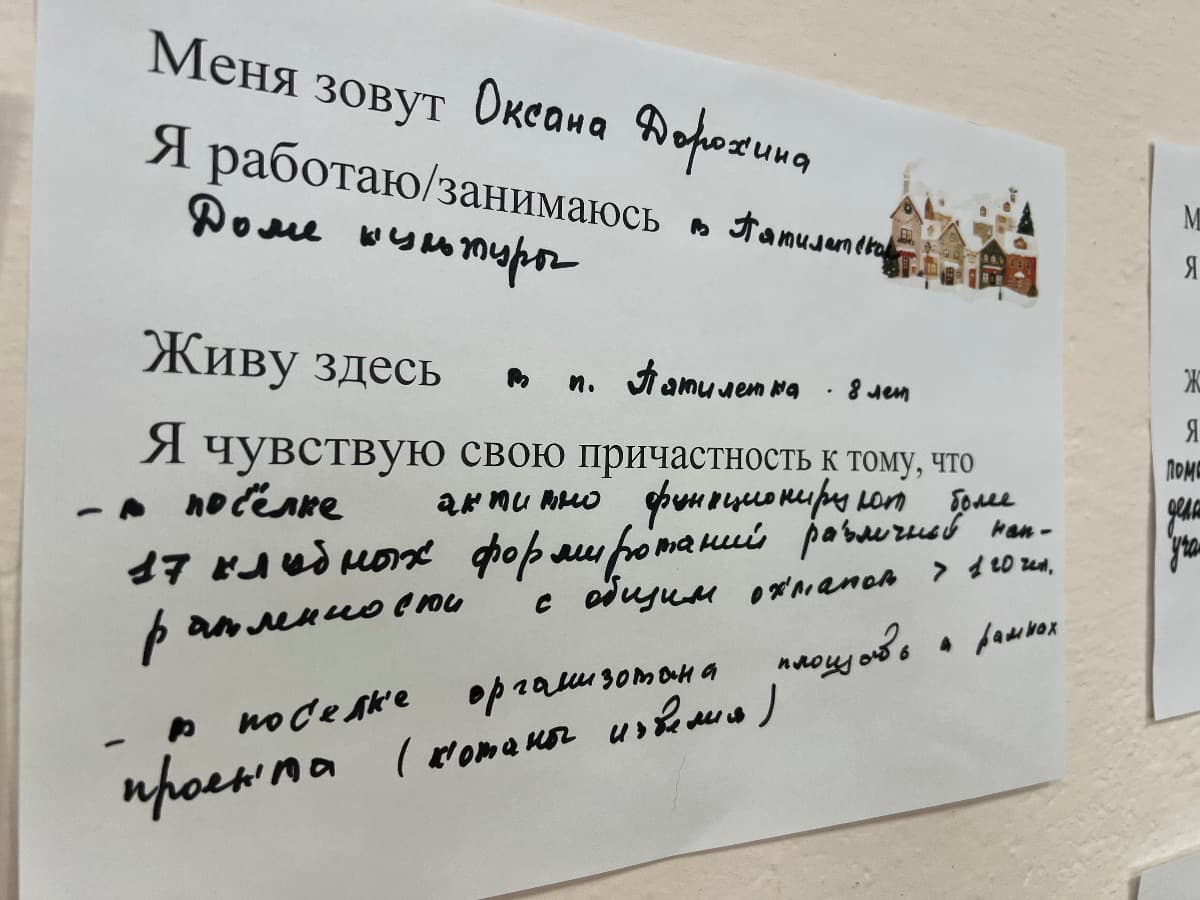 Меня зовут Оксана Дорохина
Я работаю/занимаюсь в Пятилетском
Доме культуры
Живу здесь в п. Пятилетка. 8 лет
Я чувствую свою причастность к тому, что
- в посёлке активно функционируют более
17 клубных формирований различной нап-
равленности с общим охватом > 120 чел.
- в поселке организована площадь в рамках
проекта (
М
Я
Ж
Я